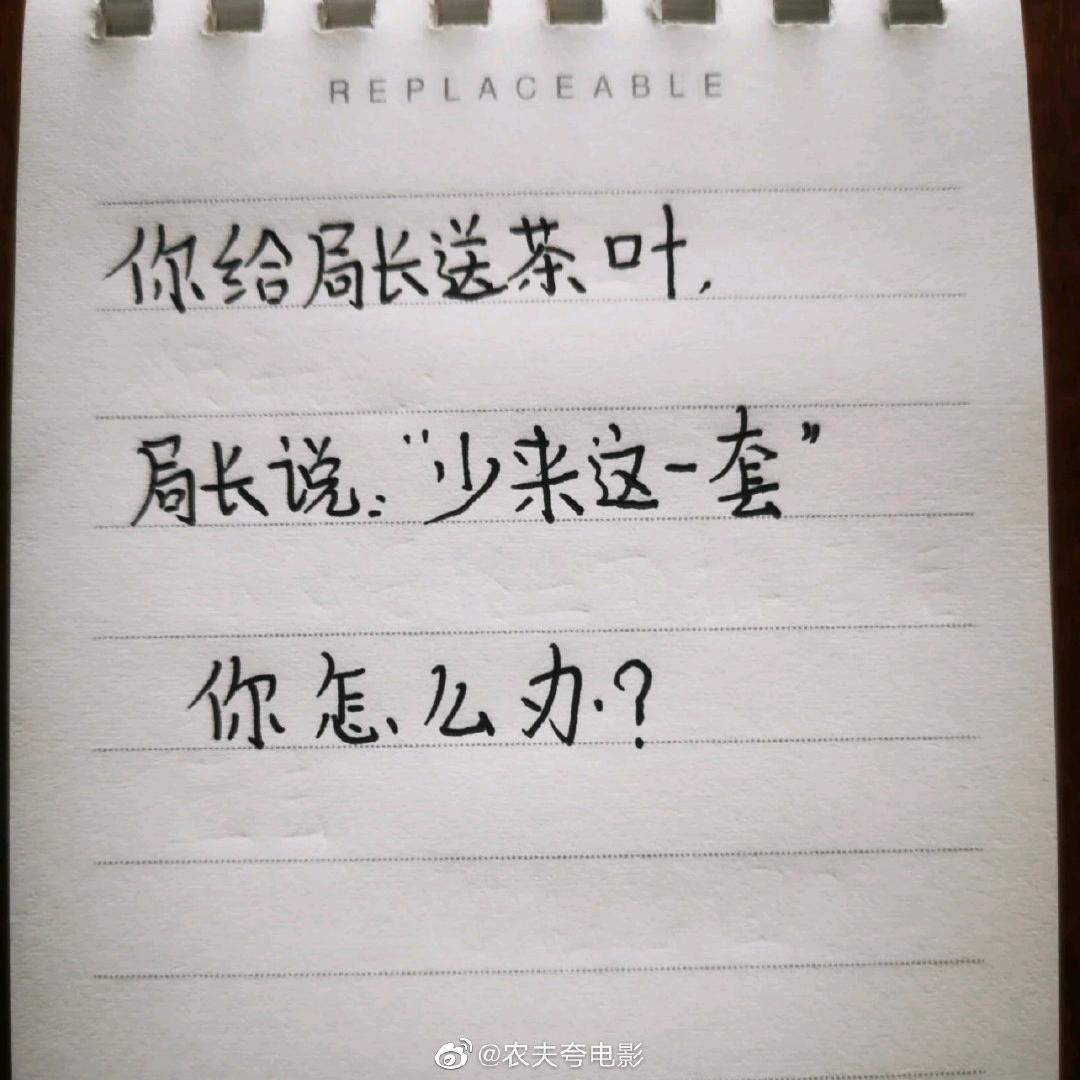 REPLACEABLE
你给局长送茶叶,
局长说:“少来这一套”
你怎么办?
@农夫夸电影